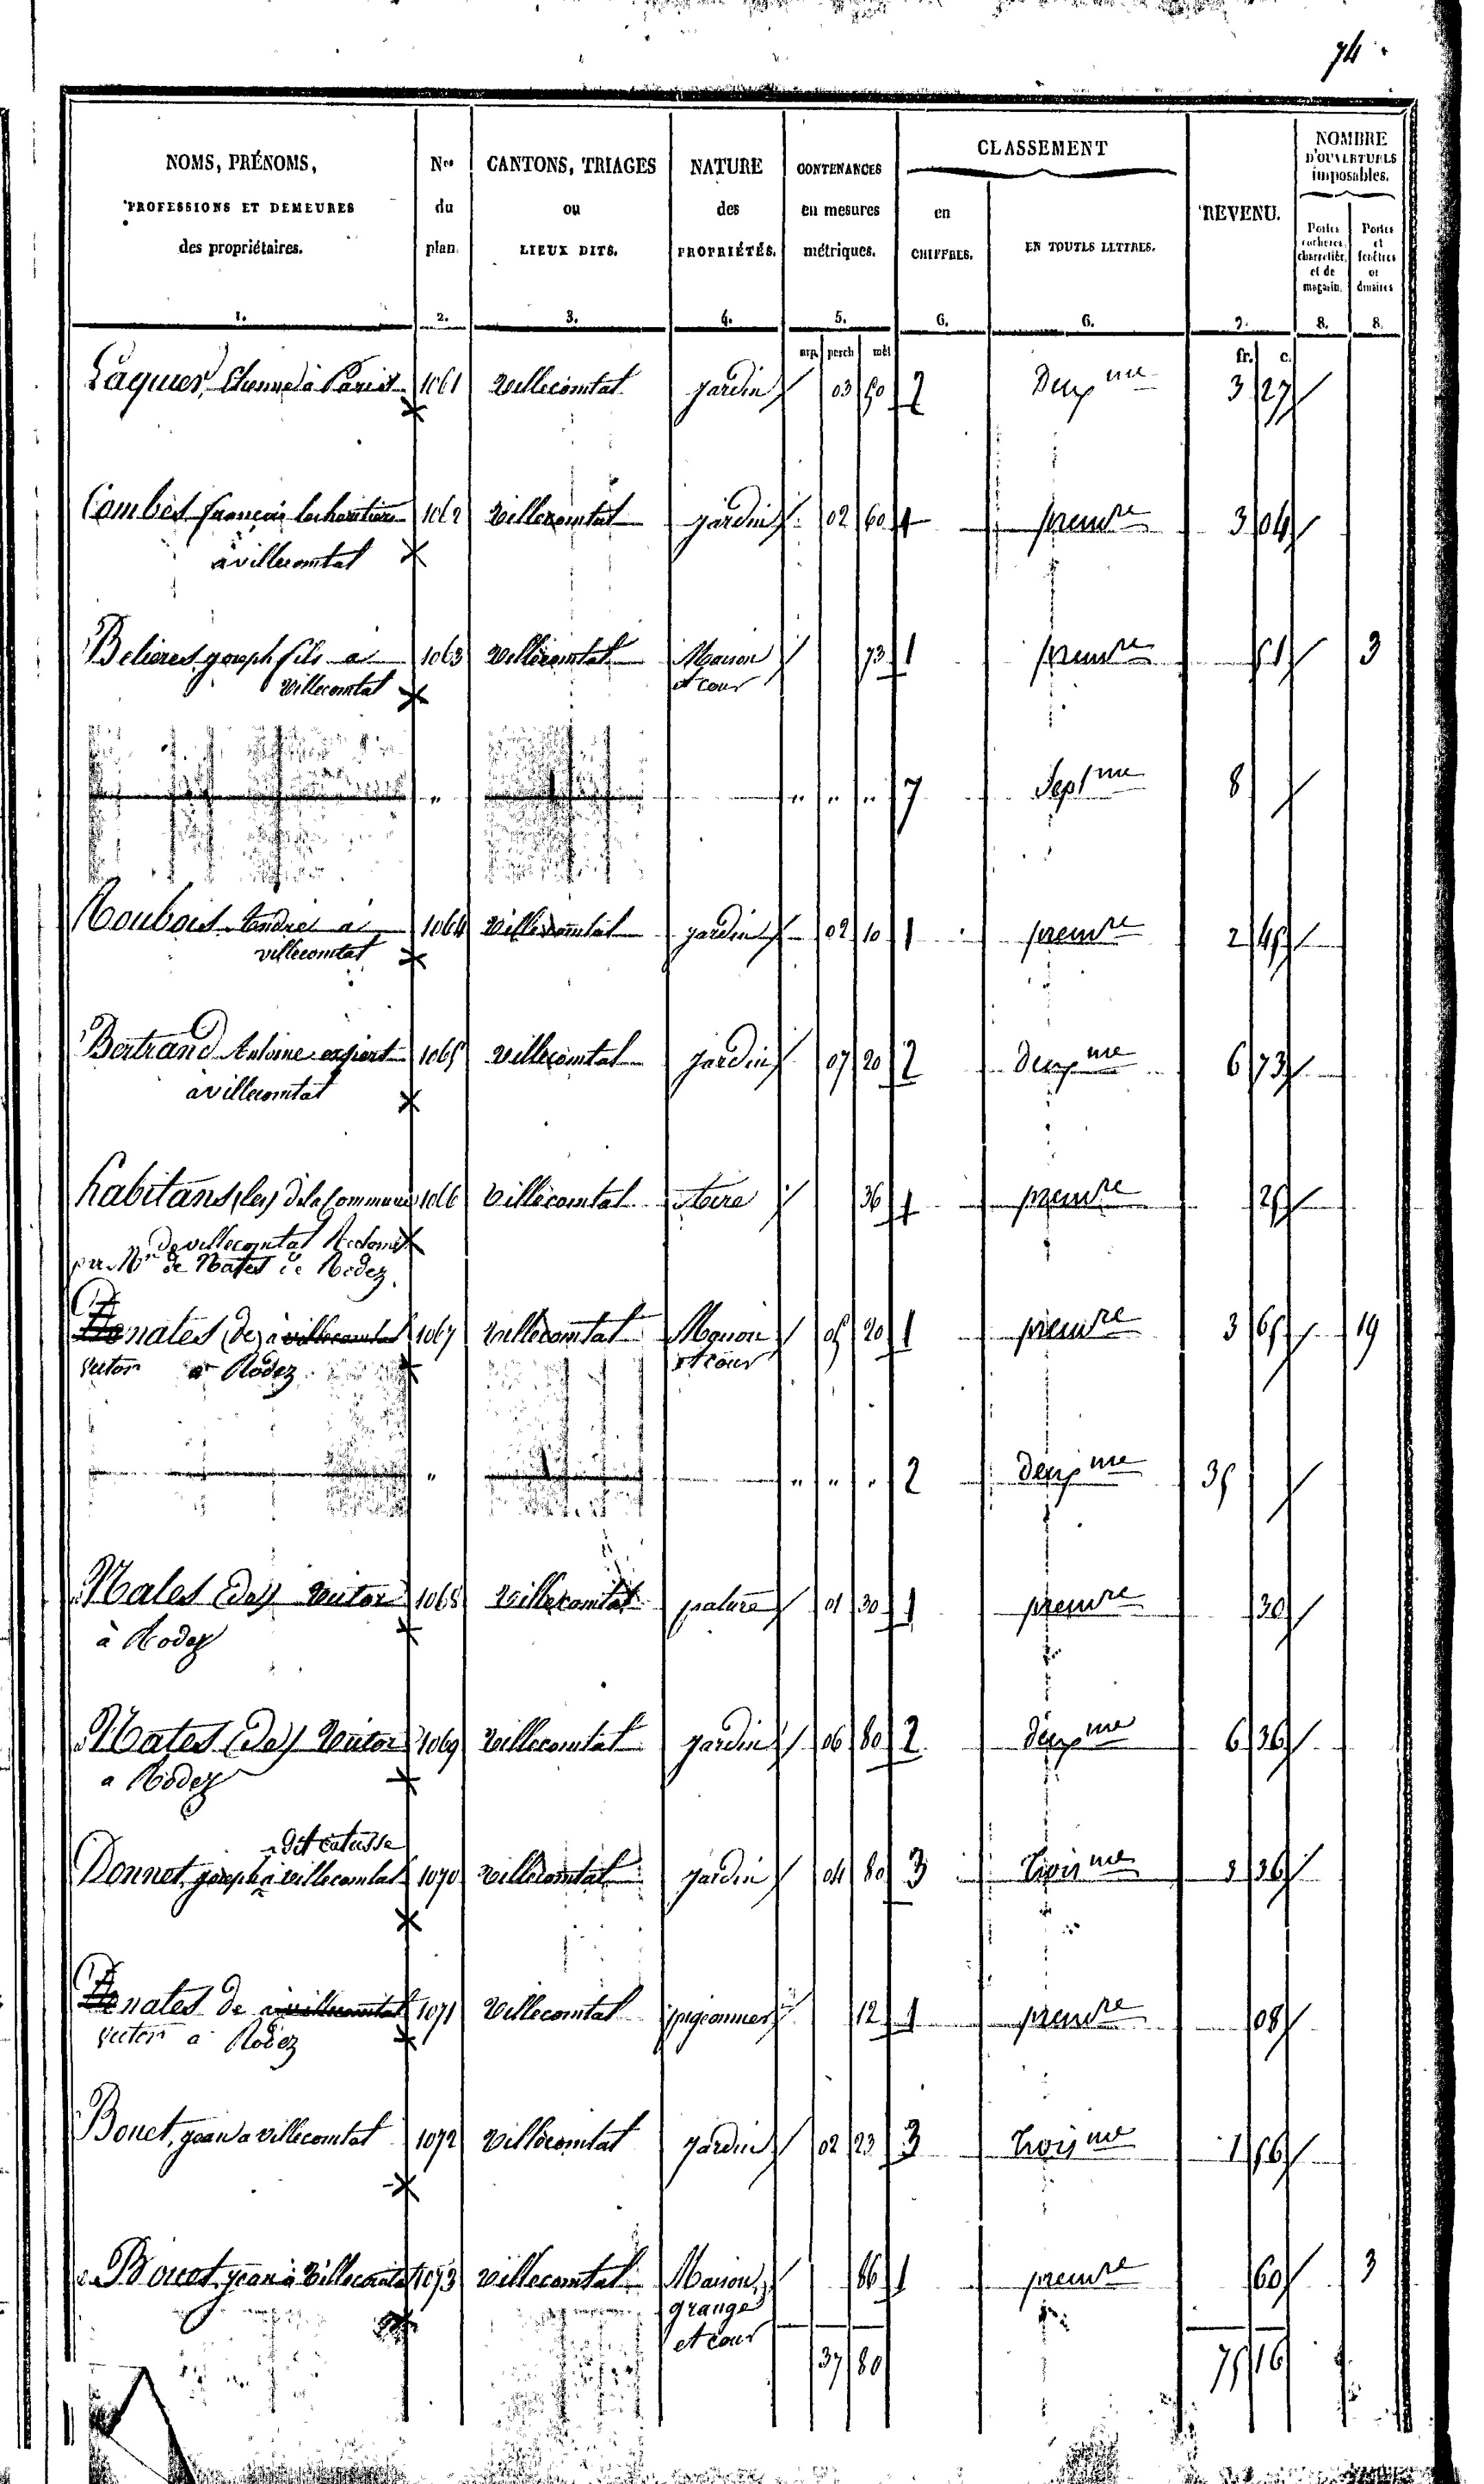 74.
NOMS, PRÉNOMS, PROFESSIONS ET DEMEURES des propriétaires. 1.
Nos du plan. 2.
CANTONS, TRIAGES ou LIEUX DITS. 3.
NATURE des PROPRIÉTÉS. 4.
CONTENANCES en mesures métriques. 5.
CLASSEMENT
en CHIFFRES. 6.
EN TOUTES LETTRES. 6.
REVENU. 7.
NOMBRE D'OUVERTURES imposables.
Portes cochères, charretières, et de magasin. 8.
Portes et fenêtres ordinaires 8.
arp. perch mèt fr. c.
Laquier, Etienne à Paris 1061 villecomtat jardin 03 50 2 Deuxme 3 27
Combes françois les héritiers 1062 villecomtat jardin 02 60 1 premre 3 04
à villecomtat
Belieres joseph fils a 1063 villecomtat Maison 73 1 premre 51 3
villecomtat et cour
" " " " 7 Septme 8
André a 1064 villecomtat jardin 02 10 1 premre 2 45
villecomtat
Bertrand Antoine expert 1065 villecomtat jardin 07 20 2 deuxme 6 73
à villecomtat
habitans (les) de la Commune 1066 villecomtat 36 1 premre 25
de villecomtat
par Mr de Nates de Rodez
nates (de) à villecomtat 1067 villecomtat Maison 05 20 1 premre 3 65 19
victor a Rodez et cour
" " " " 2 deuxme 35
Nates (de) victor 1068 villecomtat pature 01 30 1 premre 30
à Rodez
Nates (de) victor 1069 villecomtat jardin 06 80 2 deuxme 6 36
a Rodez
dit catusse
Donnet, joseph à villecomtat 1070 villecomtat jardin 04 80 3 troisme 3 36
nates de à villecomtat 1071 villecomtat pigeonnier 12 1 premre 08
victor a Rodez
Bouet, jean a villecomtat 1072 villecomtat jardin 02 23 3 troisme 1 56
Bouet, jean à villecomtat 1073 villecomtat Maison, 86 1 premre 60 3
grange
et cour
37 80 75 16